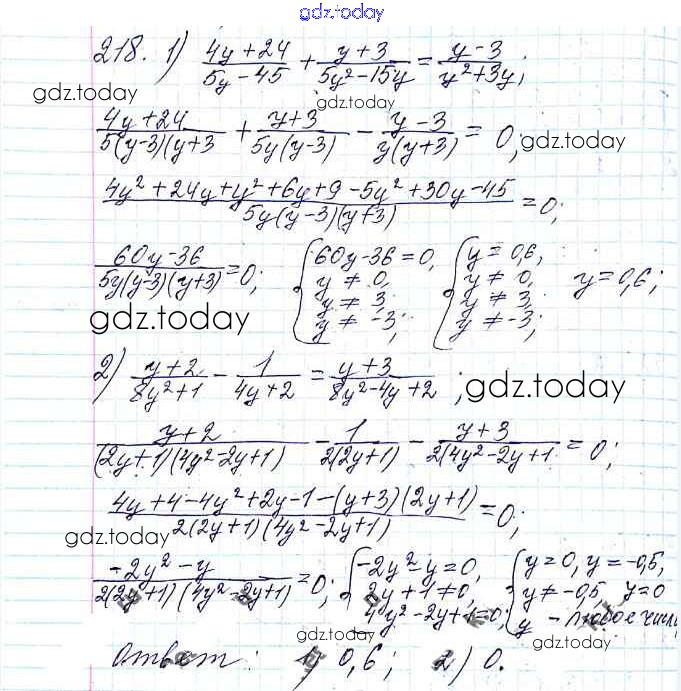 gdz.today
218. 1) (4y+24)/(5y-45) + (y+3)/(5y²-15y) = (y-3)/(y²+3y);
gdz.today gdz.today
(4y+24)/(5(y-3)(y+3) + (y+3)/(5y(y-3)) - (y-3)/(y(y+3)) = 0; gdz.today
(4y²+24y+y²+6y+9-5y²+30y-45)/(5y(y-3)(y+3)) = 0;
(60y-36)/(5y(y-3)(y+3)) = 0; { 60y-36=0, y≠0, y≠3, y≠-3; { y=0,6, y≠0, y≠3, y≠-3; y=0,6;
gdz.today
2) (y+2)/(8y²+1) - 1/(4y+2) = (y+3)/(8y²-4y+2); gdz.today
(y+2)/((2y+1)(4y²-2y+1)) - 1/(2(2y+1)) - (y+3)/(2(4y²-2y+1) = 0;
(4y+4-4y²+2y-1-(y+3)(2y+1))/(2(2y+1)(4y²-2y+1)) = 0;
gdz.today
(-2y²-y)/(2(2y+1)(4y²-2y+1)) = 0; { -2y²-y=0, 2y+1≠0, 4y²-2y+1=0; { y=0, y=-0,5, y≠-0,5, y=0 y - любое числ
Ответ: 1) 0,6; 2) 0.